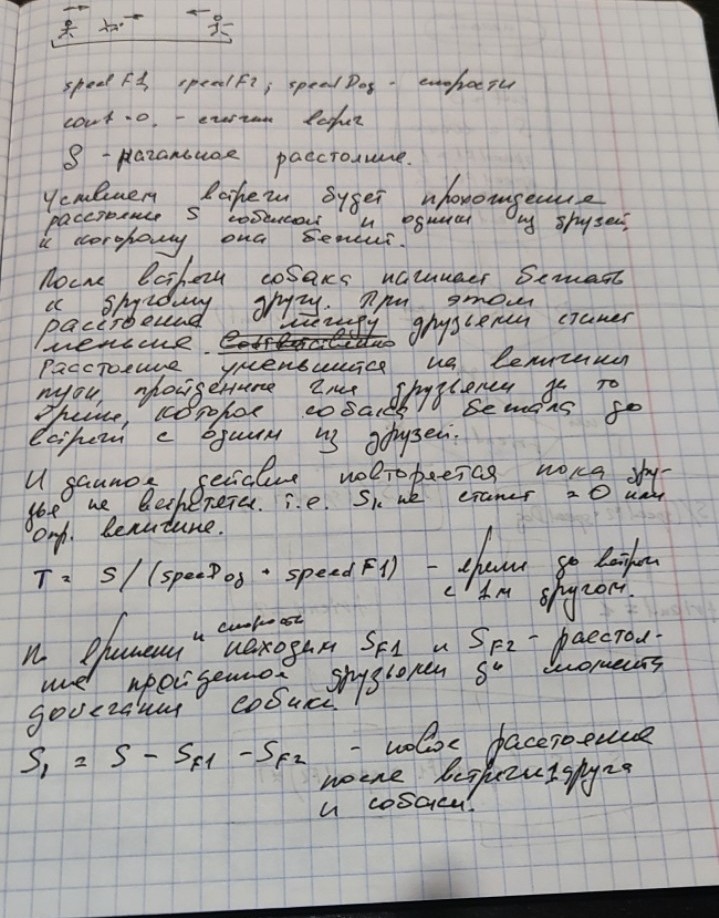 speed F1, speed F2, speed Dog - скорости
count = 0. - счетчик встреч
S - начальное расстояние.
Условием встречи будет прохождение
расстояние S собакой и одним из друзей,
к которому она бежит.
После встречи собака начинает бежать
к другому другу. При этом
расстояние между друзьями станет
меньше.
Расстояние уменьшится на величину
пути, пройденные друзьями за то
время, которое собака бежала до
встречи с одним из друзей.
И данное действие повторяется пока дру-
зья не встретятся. т.е. S₁ не станет = 0 или
опр. величине.
T = S / (speedDog + speedF1) - время до встречи
с 1м другом.
По времени и скорости находим SF1 и SF2 - расстоя-
ние пройденное друзьями до момента
добегания собаки.
S₁ = S - SF1 - SF2 - новое расстояние
после встречи 1 друга
и собаки.